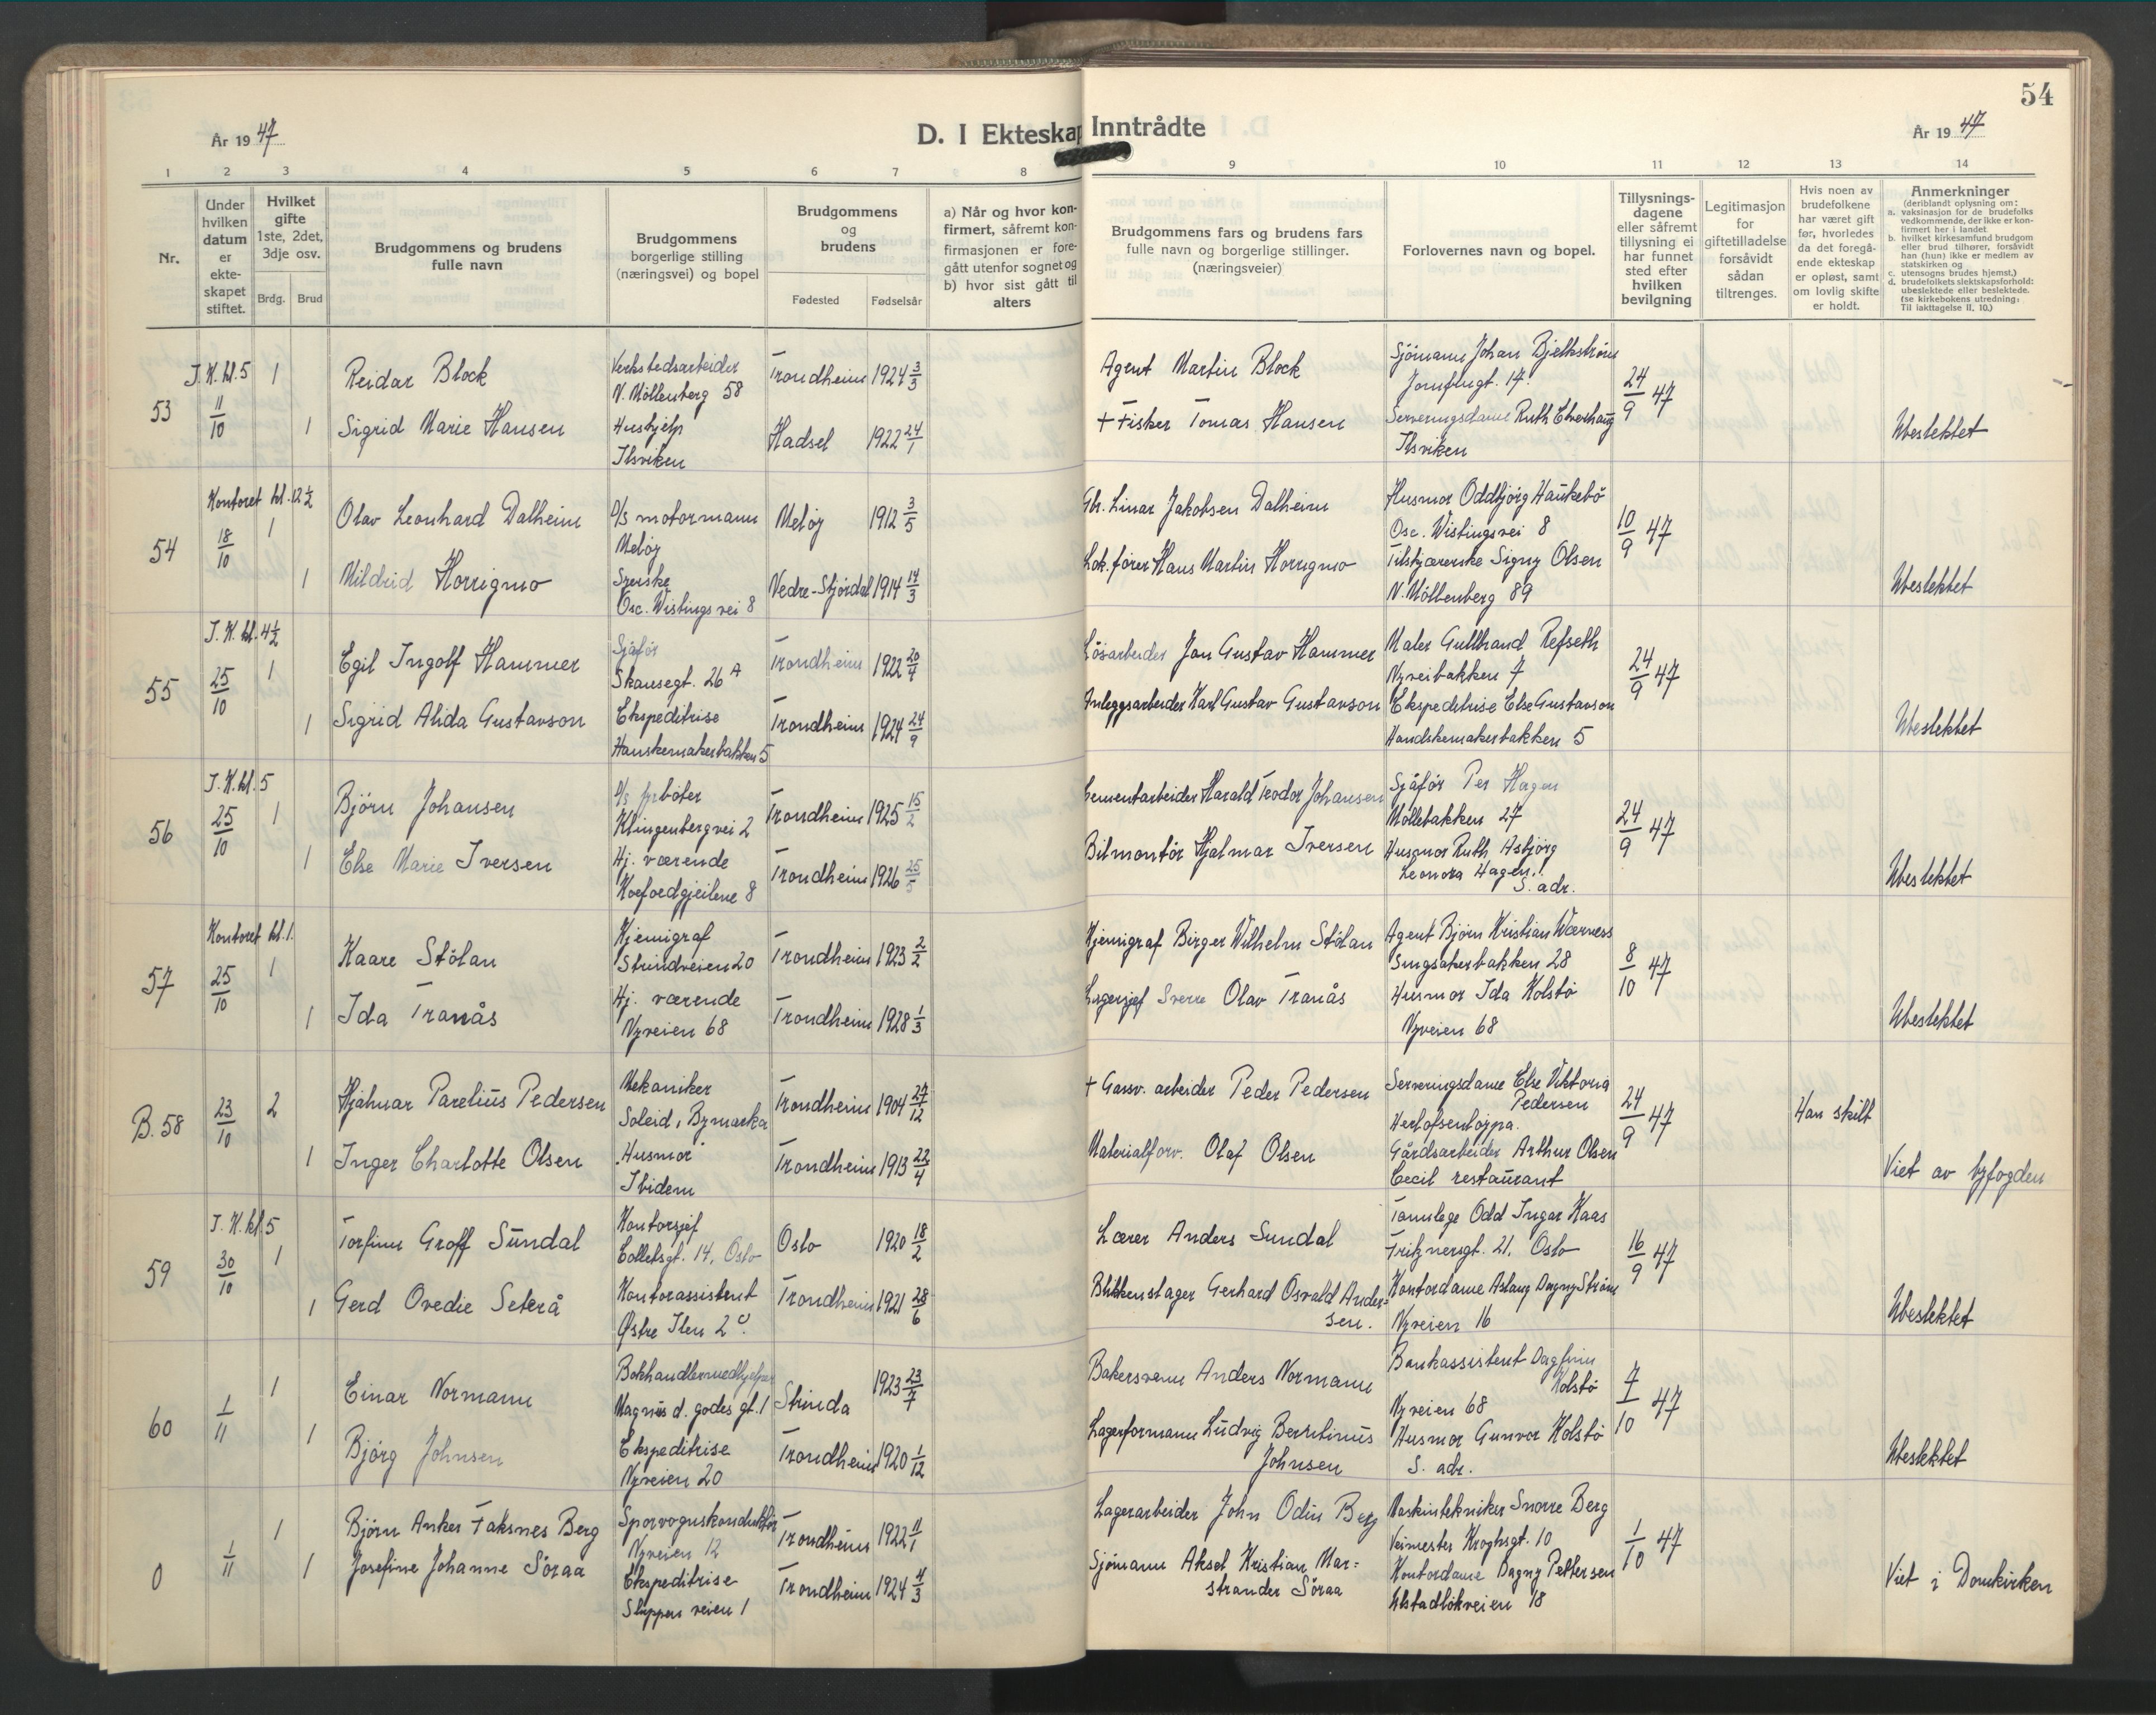 54
År 19 47
D. I Ekteskap Inntrådte
År 19 47
1 2 3 4 5 6 7 8 9 10 11 12 13 14
Nr.
Under hvilken datum er ekte-skapet stiftet.
Hvilket gifte 1ste, 2det, 3dje osv.
Brdg. Brud
Brudgommens og brudens fulle navn
Brudgommens borgerlige stilling (næringsvei) og bopel
Brudgommens og brudens
Fødested Fødselsår
a) Når og hvor kon-
firmert, såfremt kon-
firmasjonen er fore-
gått utenfor sognet og
b) hvor sist gått til
alters
Brudgommens fars og brudens fars
fulle navn og borgerlige stillinger.
(næringsveier)
Forlovernes navn og bopel.
Tillysnings-
dagene
eller såfremt
tillysning ei
har funnet
sted efter
hvilken
bevilgning
Legitimasjon
for
giftetilladelse
forsåvidt
sådan
tiltrenges.
Hvis noen av
brudefolkene
har været gift
før, hvorledes
da det foregå-
ende ekteskap
er opløst, samt
om lovlig skifte
er holdt.
Anmerkninger
(deriblandt oplysning om:
a. vaksinasjon for de brudefolks
vedkommende, der ikke er kon-
firmert her i landet.
b. hvilket kirkesamfund brudgom
eller brud tilhører, forsåvidt
han (hun) ikke er medlem av
statskirken og
c. utensogns brudes hjemst.)
d. brudefolkets slektskapsforhold:
ubeslektede eller beslektede.
(se kirkebokens utredning:
Til iakttagelse II, 10.)
53 I.K. kl. 5 11/10 1 Reidar Block Verkstedsarbeider Trondheim 1924 3/3 Agent Martin Block Sjömann Johan Bjelkström 24/9 47
N. Möllenberg 58 Jomfrugt. 14.
1 Sigrid Marie Hansen Hushjelp Hadsel 1922 24/1 + Fisker Tomas Hansen Serveringsdame Ruth Elverhaug
Ilsviken Ilsviken Ubeslektet
54 Kontoret kl. 12½ 18/10 1 Olav Leonhard Dalheim D/S motormann Melöy 1912 3/5 Gbr. Einar Jakobsen Dalheim Husmor Oddbjörg Haukebö 10/9 47
Melöy Osc. Wistingsvei 8
1 Mildrid Horrigmo Syerske Nedre-Stjördal 1914 14/3 Lok.förer Hans Martin Horrigmo Tilskjærerske Signy Olsen
Osc. Wistings vei 8 N. Möllenberg 89 Ubeslektet
55 I.K. kl. 4½ 25/10 1 Egil Ingolf Hammer Sjåför Trondheim 1922 20/4 Lösarbeider Jon Gustav Hammer Maler Gulbrand Refseth 24/9 47
Skansegt. 26 A Nyveibakken 7
1 Sigrid Alida Gustavson Ekspeditrise Trondheim 1924 24/9 Anleggsarbeider Karl Gustav Gustavson Ekspeditrise Else Gustavson
Hanskemakerbakken 5 Handskemakerbakken 5 Ubeslektet
56 I.K. kl. 5 25/10 1 Björn Johansen D/S fyrböter Trondheim 1925 15/2 Cementarbeider Harald Teodor Johansen Sjåför Per Hagen 24/9 47
Klingenbergvei 2 Möllebakken 27
1 Else Marie Iversen Hj. værende Trondheim 1926 25/5 Bilmontör Hjalmar Iversen Husmor Ruth Asbjörg
Koefoedgjeilene 8 Leonora Hagen. S. adr. Ubeslektet
57 Kontoret kl. 1. 25/10 1 Kaare Stölan Kjemigraf Trondheim 1923 2/2 Kjemigraf Birger Wilhelm Stölan Agent Björn Kristian Wærness 8/10 47
Strindveien 20 Singsakerbakken 28
1 Ida Tranås Hj. værende Trondheim 1928 1/3 Lagersjef Sverre Olav Tranås Husmor Ida Kolstö
Nyveien 68 Nyveien 68 Ubeslektet
B. 58 23/10 2 Hjalmar Parelius Pedersen Mekaniker Trondheim 1904 27/12 + Gassv. arbeider Peder Pedersen Serveringsdame Else Viktoria Pedersen 24/9 47 Han skilt
Soleid, Bymarka Herlofsenlöypa.
1 Inger Charlotte Olsen Husmor Trondheim 1913 22/4 Materialforv. Olaf Olsen Gårdsarbeider Arthur Olsen
Ibidem Cecil restaurant Viet av byfogden
59 I.K. kl. 5 30/10 1 Torfinn Groff Sundal Kontorsjef Oslo 1920 18/2 Lærer Anders Sundal Tannlege Odd Ingar Kaas 16/9 47
Colletsgt. 14, Oslo Fritznersgt. 21, Oslo
1 Gerd Ovedie Seterå Kontorassistent Trondheim 1921 28/6 Blikkenslager Gerhard Osvald Ander= Kontordame Aslaug Dagny Ström
Østre Ilen 2 c. sen. Nyveien 16 Ubeslektet
60 1/11 1 Einar Normann Bokhandlermedhjelper Strinda 1923 23/7 Bakersvenn Anders Normann Bankassistent Dagfinn Kolstö 7/10 47
Magnus d. godes gt. 1 Nyveien 68
1 Björg Johnsen Ekspeditrise Trondheim 1920 1/12 Lagerformann Ludvig Berntinus Husmor Gunvor Kolstö
Nyveien 20 Johnsen S. adr. Ubeslektet
0 1/11 1 Björn Anker Faksnes Berg Sporvognskonduktör Trondheim 1922 11/1 Lagerarbeider John Odin Berg Maskintekniker Snorre Berg 1/10 47
Nyveien 12 Veimester Kroghsgt. 10
1 Josefine Johanne Söraa Ekspeditrise Trondheim 1924 4/3 Sjömann Aksel Kristian Mar= Kontordame Dagny Pettersen
Sluppen veien 1 strander Söraa Ulstadlökveien 18 Viet i Domkirken